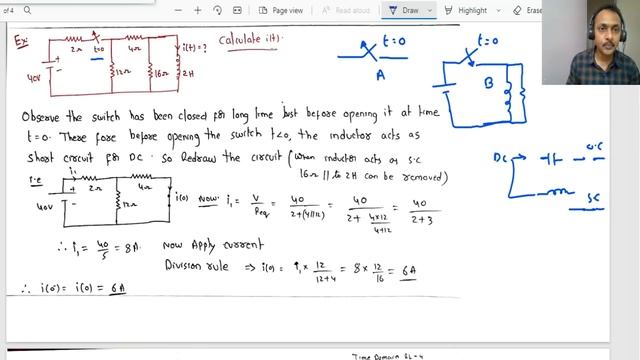 of 4
Page view
Read aloud
Draw
Highlight
Erase
Ex:
2Ω
t=0
4Ω
i(t)=?
Calculate i(t).
40V
12Ω
16Ω
2H
t=0
A
t=0
B
Observe the switch has been closed for long time just before opening it at time
t=0. There fore before opening the switch t<0, the inductor acts as
short circuit for DC. So Redraw the circuit (when inductor acts as s.c
16Ω || to 2H can be removed)
DC
o.c
sc
i.e
i₁
2Ω
4Ω
40V
12Ω
i(0)
Now: i₁ = V/Req = 40/2+(4||12) = 40/2+ 4×12/4+12 = 40/2+3
∴ i₁ = 40/5 = 8A. Now Apply current
Division rule ⇒ i(0) = i₁ × 12/12+4 = 8 × 12/16 = 6A
∴ i(0⁻) = i(0) = 6A
Time Domain SL-4